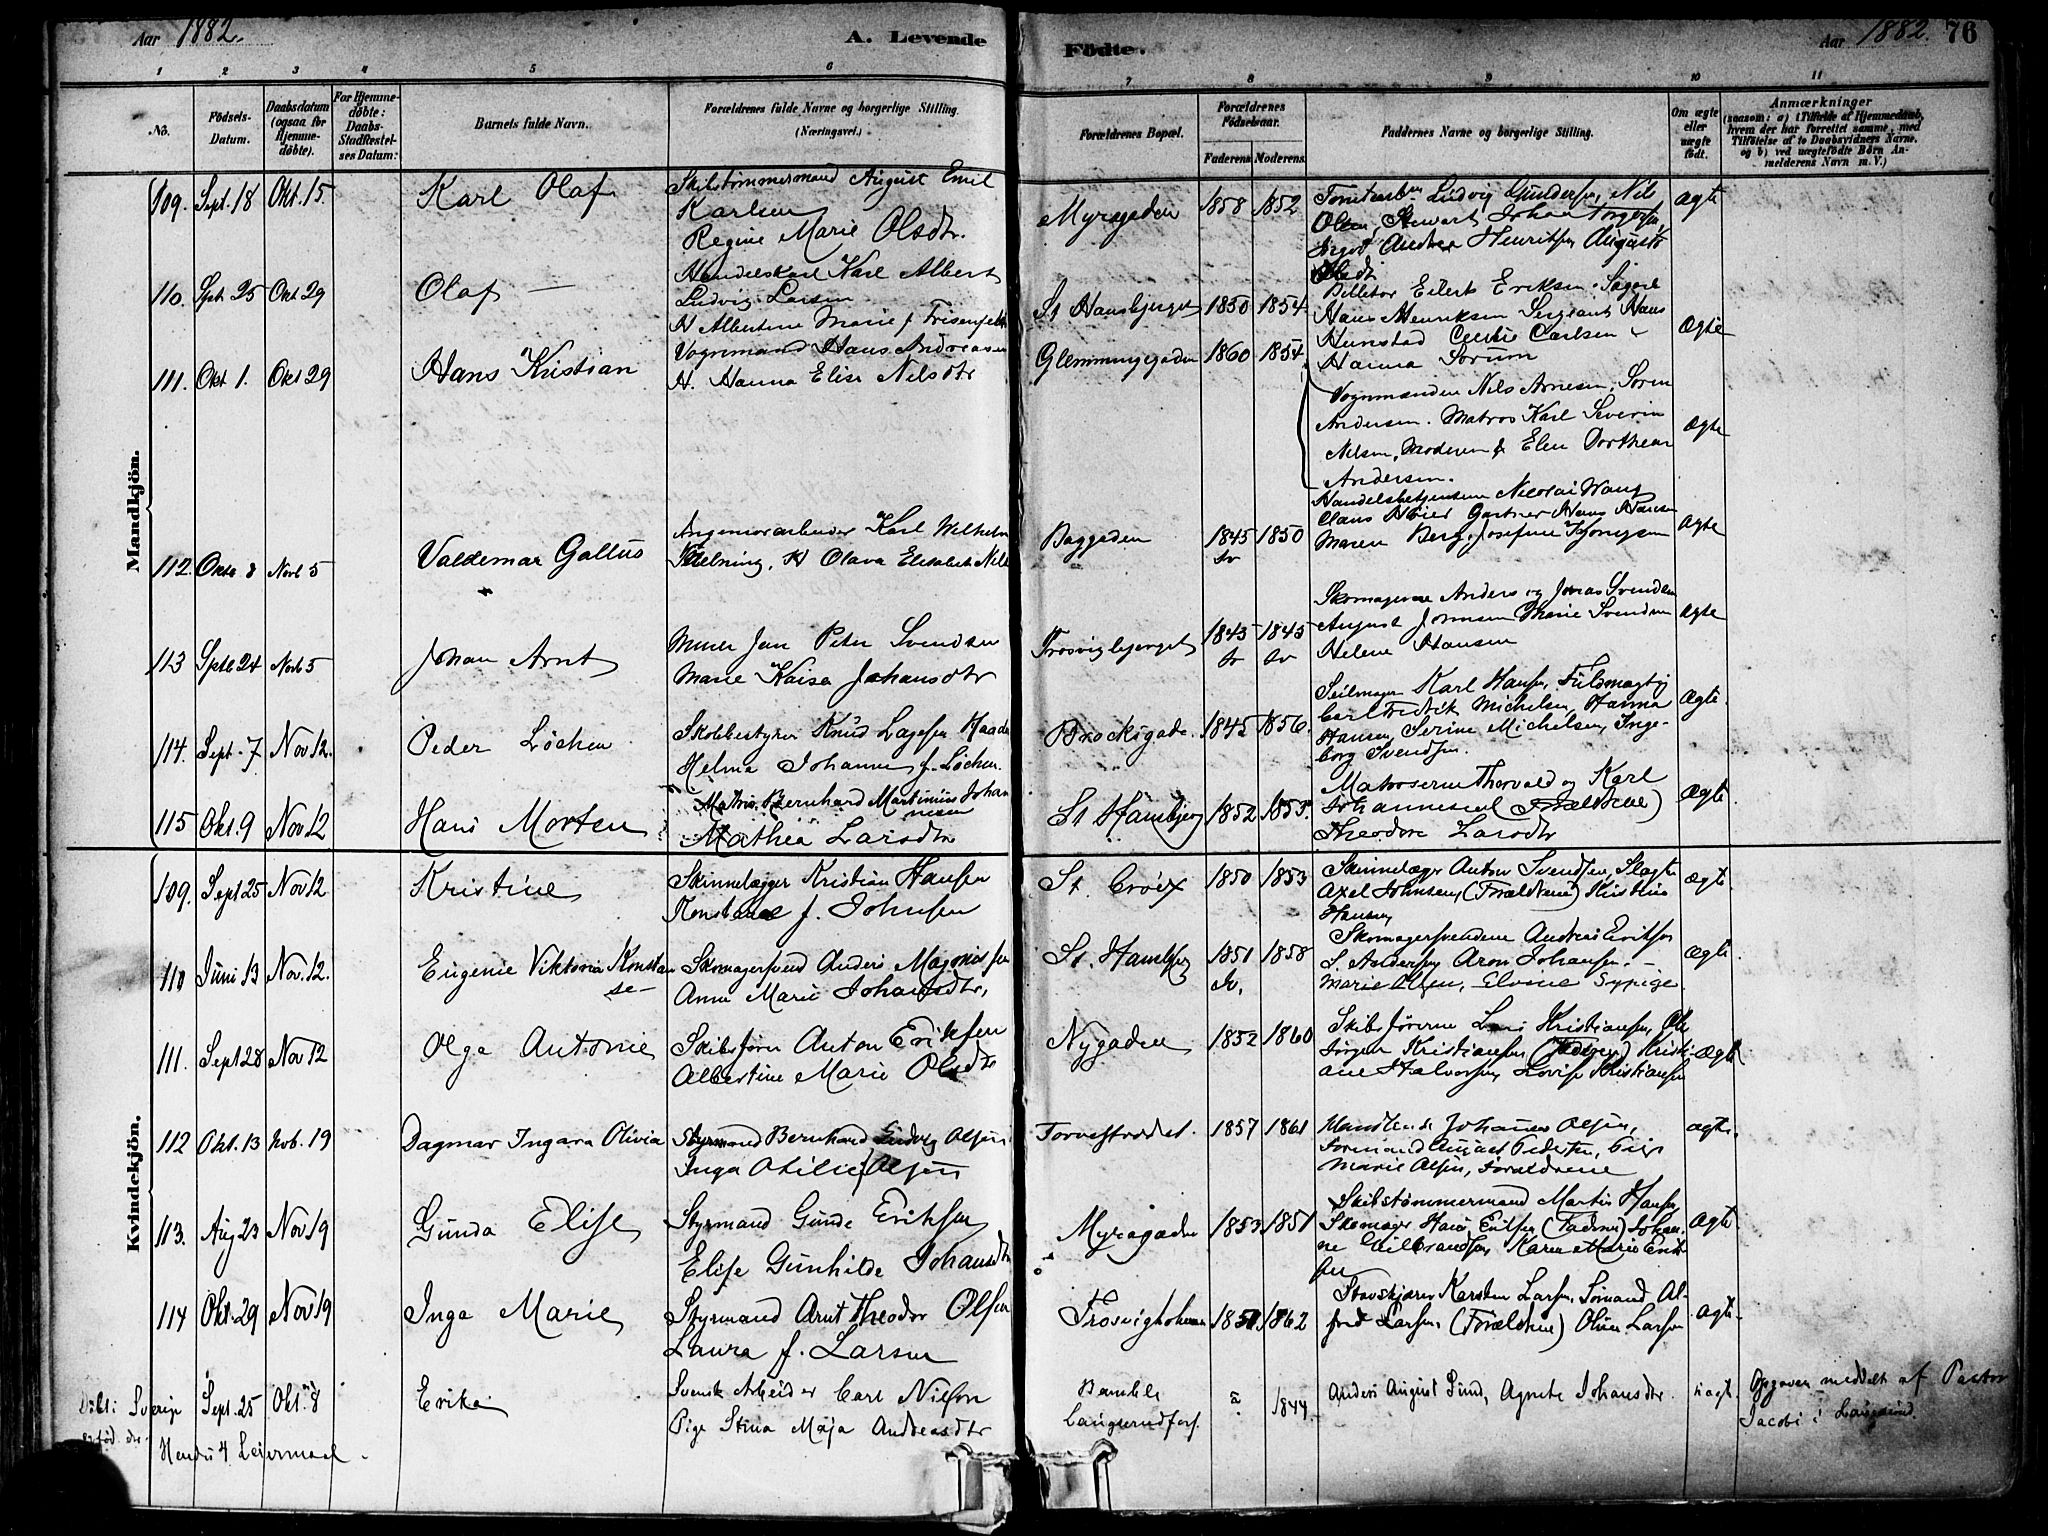 Aar 1882. A. Levende Födte. Aar 1882. 76
1 2 3 4 5 6 7 8 9 10 11
No. Födsels-Datum. Daabsdatum (ogsaa for Hjemme-döbte). For Hjemme-döbte: Daabs-Stadfæstel-ses Datum: Barnets fulde Navn. Forældrenes fulde Navne og borgerlige Stilling. (Næringsvei.) Forældrenes Bopæl. Forældrenes Födselsaar. Faderens Moderens. Faddernes Navne og borgerlige Stilling. Om ægte eller uægte födt. Anmærkninger (saasom: a) i Tilfælde af Hjemmedaab, hvem der har forrettet samme, med Tilföielse af to Daabsvidners Navne, og b) ved uægtefödte Börn An-melderens Navn m. V.)
Mandkjön.
109. Sept. 18 Okt. 15. Karl Olaf Skibstømmermand August Emil
Karlsen
Regine Marie Olsdtr.
Myragaden 1858 1852 Ludvig Gundersen, Nils
Olsen, Stewart Johan Torgersen
Andrea Henriksen Auguste
Olsdtr
Ægte
110. Spt. 25 Okt 29 Olaf — Handelskarl Karl Albert
Ludvig Larsen
H Albertine Marie f
St Hansbjerget 1850 1854 Eilert Eriksen
Hans Henriksen Sergeant Hans
Hunstad Carlsen
Hanna Sørum
Ægte
111. Okt 1. Okt 29 Hans Kristian Vognmand Hans Andreasen
H. Hanna Elise Nilsdtr
Glemmingegaden 1860 1854 Vognmændene Nils Arnesen, Søren
Andersen. Matros Karl Severin
Nilsen, Moderen & Elen Dorthea
Andersen.
Ægte
112. Okt 8 Novb 5 Valdemar Gallus Karl Wilhelm
H Olava Elisabet Nils
Baggaden 1845 sv 1850 Handelsbetjentene Nicolai Wang
Claus Høier Gartner Hans Hansen
Maren Berg, Josefine
Ægte
113 Sptb 24 Novb 5 Johan Arnt Murer Jan Peter Svendsen
Marie Kaisa Johansdtr
Trosvigbjerget 1845 sv 1845 sv Skomagerne Anders og Jonas Svendsen
August Jonnsen Marie Svendsen
Helene Hansen
Ægte
114. Sept. 7 Nov 12. Peder Løchen Skolebestyrer Knud
Helma Johanne f. Løchen.
Brochsgade. 1845 1856. Seilmager Karl Hansen, Fuldmægtig
Carl Fredrik Michelsen, Hanna
Hansen, Serine Michelsen, Inge-
borg Svendsen.
Ægte.
115 Okt. 9 Nov 12 Hans Morten Matros Bernhard Martinius Johan
nesen
Mathea Larsdtr
St Hansbjerg 1852 1853. Matroserne Thorvald og Karl
Johannesen (Forældrene)
Theodore Larsdtr
Ægte
Kvindekjön.
109. Sept 25 Nov 12 Kristine Skindelægger Kristian Hansen
Konstanse f. Johnsen
St. Croix 1850 1853 Skindelægger Anton Svendsen, Slagter
Axel Johnsen, (Forældrene) Kristine
Hansen
Ægte
110 Juni 13 Nov. 12. Eugenie Viktoria Konstan
se—
Skomagersvend Anders Magnussen
Anna Marie Johansdtr,
St. Hansbjerg 1851 sv. 1858 Skomagersvendene Andreas Eriksen
L. Andersen Aron Johansen. —
Marie Olsen, Elvine Sypige
Ægte
111. Sept 28 Nov 12 Olga Antonie Skibsfører Anton Eriksen
Albertine Marie Olsdtr
Nygaden 1852 1860 Skibsførerne Lars Kristiansen, Ole
Jørgen Kristiansen (Faderen) Kristi-
ane Halvorsen, Lovise Kristiansen
Ægte
112 Okt. 13 Nob. 19 Dagmar Ingara Olivia Styrmand Bernhard Ludvig Olsen
Inga Otilie f Olsen
Torvestrædet. 1857 1861 Johannes Olsen,
Formand August Pedersen, Pige
Marie Olsen, Forældrene
ægte.
113. Aug 23 Nov 19 Gunda Elise Styrmand Gunde Eriksen
Elise Gunhilde Johansdtr
Myragaden 1853 1851 Skibstømmermand Martin Hansen,
Skomager Hans Eriksen (Faderen) Johan-
ne Gulbrandsen, Karen Marie Erik
sen
Ægte
114 Okt. 29 Nov 19 Inga Marie Styrmand Arnt Theodor Olsen
Laura f. Larsen
Trosvigholmen 1851. 1862 Kersten Larsen, Sømand Al-
fred Larsen, (Forældrene) Oline Larsen
ægte.
Døbt i Sverige Sept. 25 Okt. 8 Erika Svensk Arbeider Carl Nilson
Pige Stina Maja Andreasdtr
Langesundsf. 1844 Anders August Lund, Agnete Johansdtr uægt. Opgaven meddelt af Pastor
Jacobi i Langesund.
Hendes 4 Leiermaal.